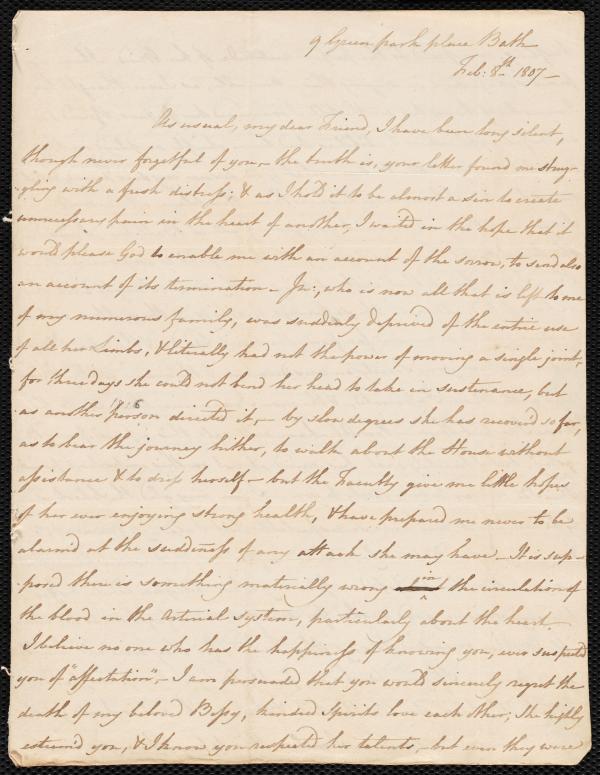 9 Green park place Bath
Feb: 8th 1807 —
As usual, my dear Friend, I have been long silent,
though never forgetful of you, — the truth is, your letter found me strug-
gling with a fresh distress; & as I hold it to be almost a sin to create
unnecessary pain in the heart of another, I waited in the hope that it
would please God to enable me with an account of the sorrow, to send also
an account of its termination —, who is now all that is left to me
of my numerous family, was suddenly deprived of the entire use
of all her Limbs, & literally had not the power of moving a single joint;
for three days she could not bend her head to take in sustenance, but
as another person directed it, — by slow degrees she has recovered so far,
1816
as to bear the journey hither, to walk about the House without
assistance & to dress herself — but the Faculty give me little hopes
of her ever enjoying strong health, & have prepared me never to be
alarmed at the suddenness of any attack she may have — It is sup-
posed there is something materially wrong in the circulation of
the blood in the Arterial system, particularly about the heart.
I believe no one who has the happiness of knowing you, ever suspected
you of "affectation", — I am persuaded that you would sincerely regret the
death of my beloved Bessy, kindred Spirits love each other; She highly
esteemed you, & I know you respected her talents, — but even they were